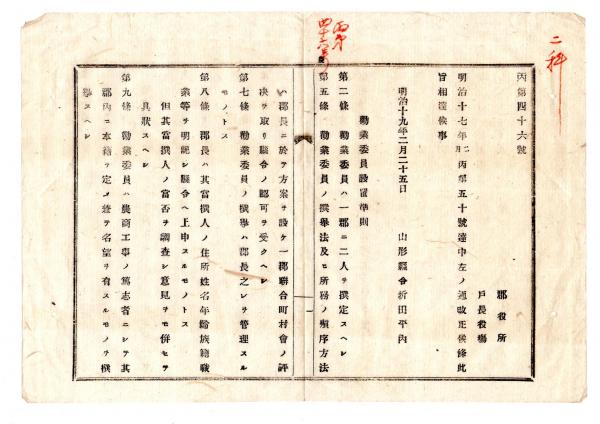 二科
丙第四十六号
丙第四十六號
郡役所
戸長役場
明治十七年二月丙第五十號達中左ノ通改正候條此
旨相達候事
明治十九年二月二十五日　山形縣令折田平内
勸業委員設置準則
第二條　勸業委員ハ一郡ニ二人ヲ撰定スヘシ
第五條　勸業委員ノ撰擧法及ヒ所務ノ順序方法
ハ郡長ニ於テ方案ヲ設ケ一郡聯合町村會ノ評
决ヲ取リ縣令ノ認可ヲ受クヘシ
第七條　勸業委員ノ撰擧ハ郡長之レヲ管理スル
モノトス
第八條　郡長ハ其當撰人ノ住所姓名年齡族籍職
業等ヲ明記シ縣令ヘ上申スルモノトス
但其當撰人ノ當否ヲ調査シ意見ヲモ併セテ
具狀スヘシ
第九條　勸業委員ハ農商工事ノ篤志者ニシテ其
郡内ニ本籍ヲ定メ兼テ名望ヲ有スルモノヲ撰
擧スヘシ